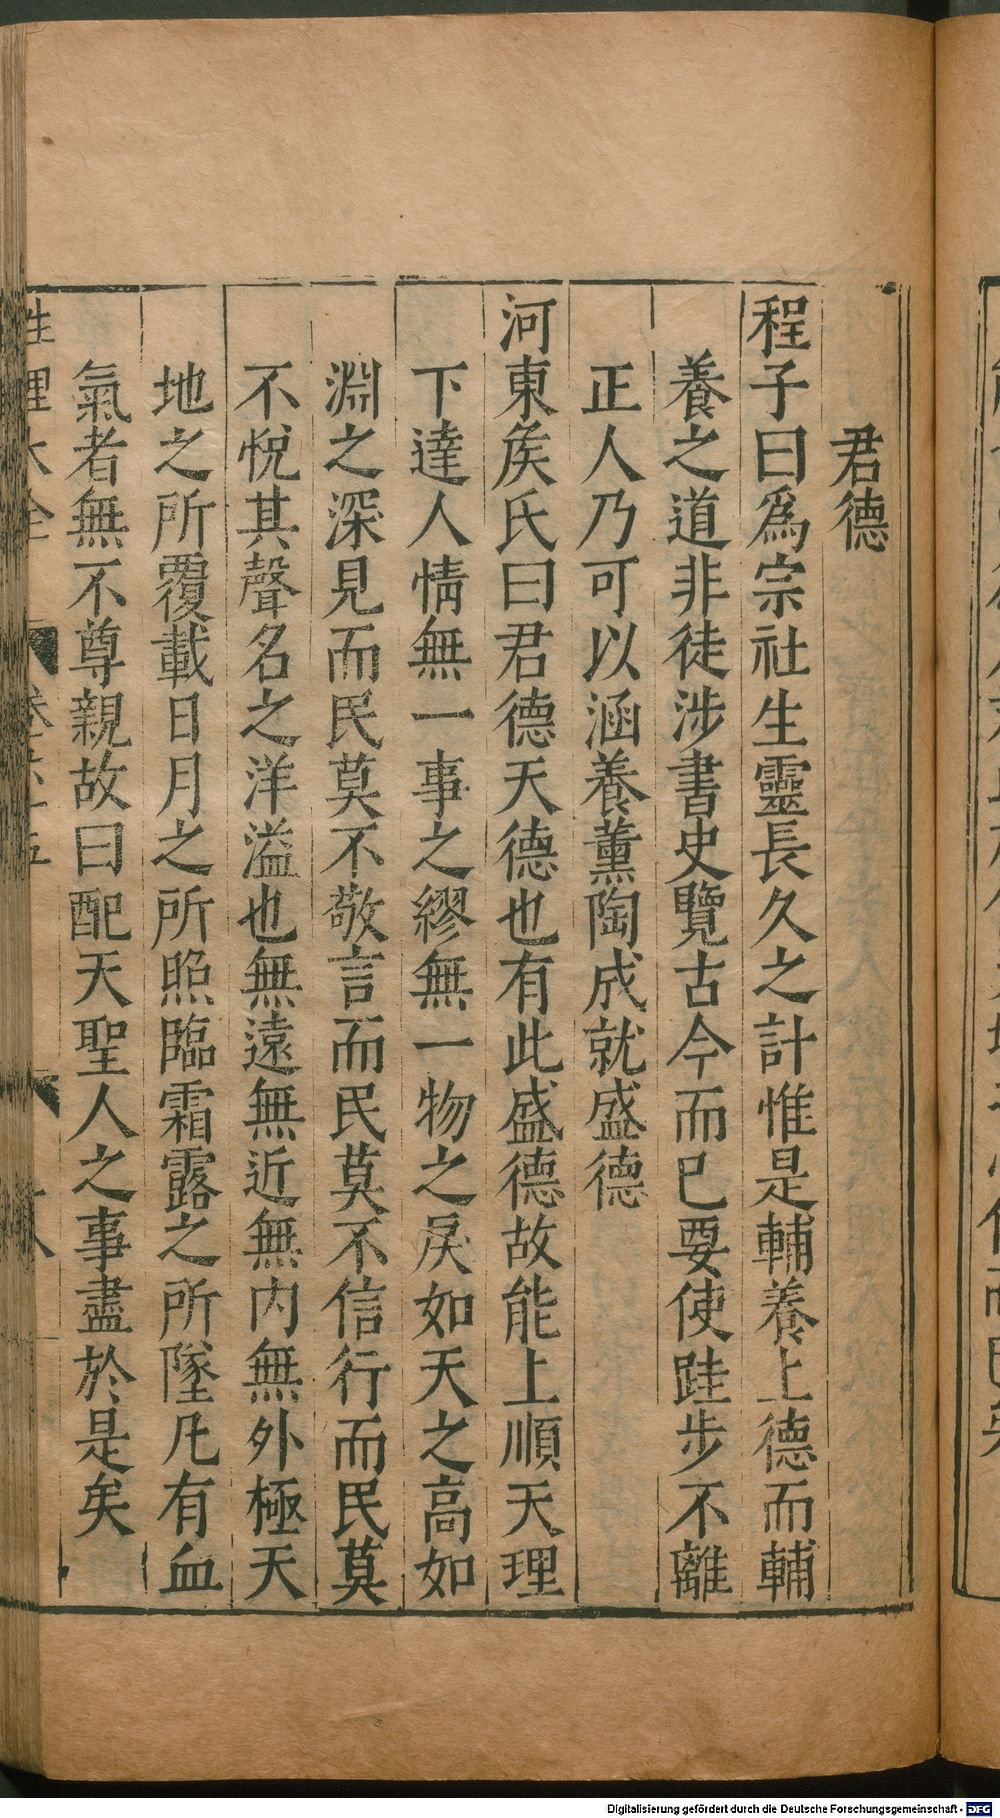 君德
程子曰爲宗社生靈長久之計惟是輔養上德而輔
養之道非徒涉書史覽古今而已要使跬步不離
正人乃可以涵養薰陶成就盛德
河東矦氏曰君德天德也有此盛德故能上順天理
下達人情無一事之繆無一物之戾如天之高如
淵之深見而民莫不敬言而民莫不信行而民莫
不悅其聲名之洋溢也無遠無近無内無外極天
地之所覆載日月之所照臨霜露之所墜凡有血
氣者無不尊親故曰配天聖人之事盡於是矣
性理大全
Digitalisierung gefördert durch die Deutsche Forschungsgemeinschaft - DFG